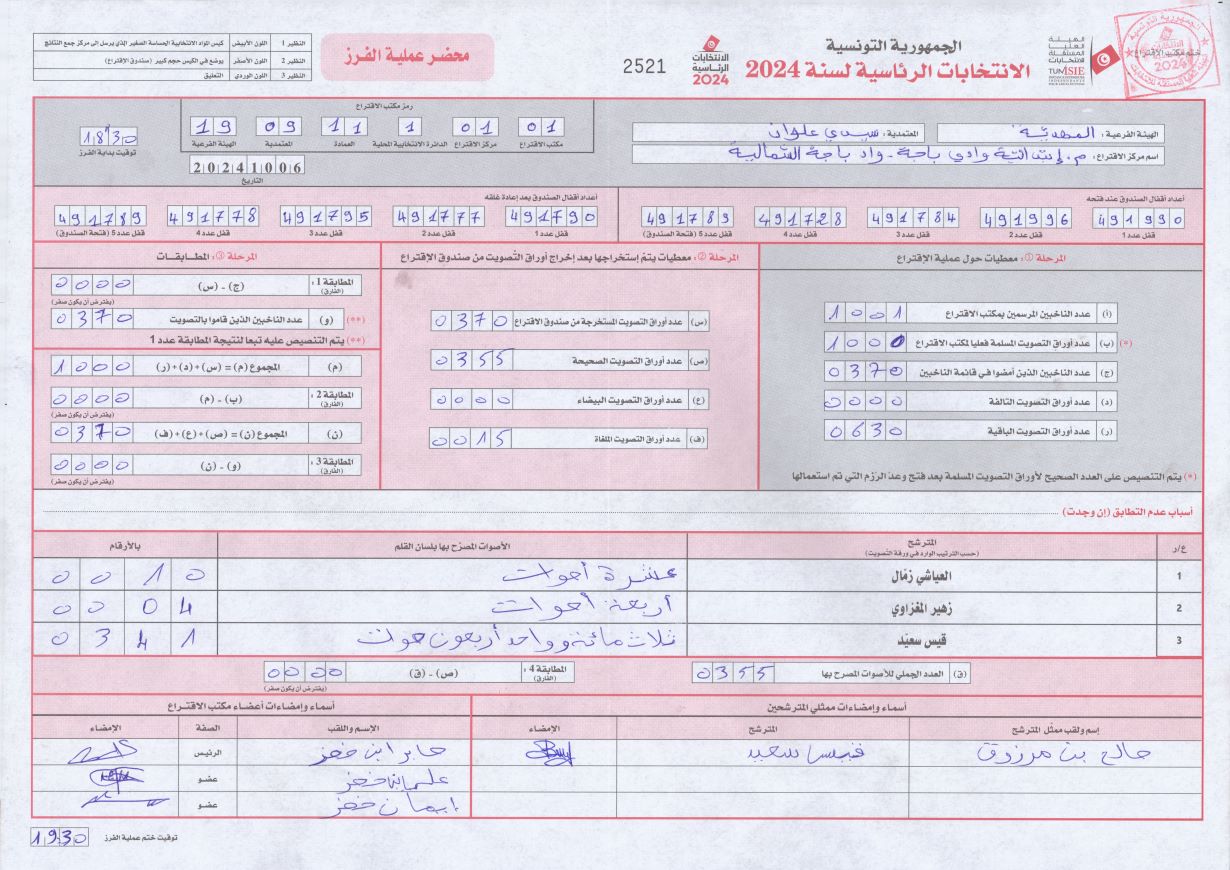 الجمهورية التونسية
الانتخابات الرئاسية لسنة 2024
الهيئة العليا المستقلة للانتخابات
TUNISIE
الانتخابات الرئاسية 2024
2521
محضر عملية الفرز
النظير 1 اللون الأبيض كيس المواد الانتخابية الحساسة الصغير الذي يرسل إلى مركز جمع النتائج
النظير 2 اللون الأصفر يوضع في الكيس حجم كبير (صندوق الإقتراع)
النظير 3 اللون الوردي التعليق
الهيئة الفرعية : المهدية المعتمدية : سيدي علوان
اسم مركز الإقتراع : م. إبتدائية وادي باجة - واد باجة الشمالية
رمز مكتب الاقتراع
01 01 1 11 09 19
مكتب الاقتراع مركز الاقتراع الدائرة الانتخابية المحلية العمادة المعتمدية الهيئة الفرعية
20241006
التاريخ
18 30
توقيت بداية الفرز
أعداد أقفال الصندوق عند فتحه
491990 491996 491784 491728 491789
قفل عدد 1 قفل عدد 2 قفل عدد 3 قفل عدد 4 قفل عدد 5 (فتحة الصندوق)
أعداد أقفال الصندوق بعد إعادة غلقه
491790 491777 491795 491778 491789
قفل عدد 1 قفل عدد 2 قفل عدد 3 قفل عدد 4 قفل عدد 5 (فتحة الصندوق)
المرحلة ①: معطيات حول عملية الاقتراع
(أ) عدد الناخبين المرسمين بمكتب الاقتراع 1001
(*) (ب) عدد أوراق التصويت المسلمة فعليا لمكتب الاقتراع 1000
(ج) عدد الناخبين الذين أمضوا في قائمة الناخبين 0370
(د) عدد أوراق التصويت التالفة 0000
(ر) عدد أوراق التصويت الباقية 0630
(*) يتم التنصيص على العدد الصحيح لأوراق التصويت المسلمة بعد فتح وعدّ الرّزم التي تم استعمالها
المرحلة ②: معطيات يتمّ إستخراجها بعد إخراج أوراق التّصويت من صندوق الإقتراع
(س) عدد أوراق التصويت المستخرجة من صندوق الاقتراع 0370
(ص) عدد أوراق التصويت الصحيحة 0355
(ع) عدد أوراق التصويت البيضاء 0000
(ف) عدد أوراق التصويت الملغاة 0015
المرحلة ③: المطابقات
المطابقة 1: (الفارق) (ج) - (س) 0000
(يفترض أن يكون صفر)
(**) (و) عدد الناخبين الذين قاموا بالتصويت 0370
(**) يتم التنصيص عليه تبعا لنتيجة المطابقة عدد 1
(م) المجموع (م) = (س)+(د)+(ر) 1000
المطابقة 2: (الفارق) (ب) - (م) 0000
(يفترض أن يكون صفر)
(ن) المجموع (ن) = (ص)+(ع)+(ف) 0370
المطابقة 3: (الفارق) (و) - (ن) 0000
(يفترض أن يكون صفر)
أسباب عدم التطابق (إن وجدت)
ع/ر المترشح الأصوات المصرّح بها بلسان القلم بالأرقام
(حسب الترتيب الوارد في ورقة التصويت)
1 العياشي زمّال عشرة أصوات 0010
2 زهير المغزاوي أربعة أصوات 0004
3 قيس سعيّد ثلاث مائة وواحد أربعون صوت 0341
(ق) العدد الجملي للأصوات المصرح بها 0355 المطابقة 4: (الفارق) (ص) - (ق) 0000
(يفترض أن يكون صفر)
أسماء وإمضاءات ممثلي المترشحين
إسم ولقب ممثّل المترشح المترشح الإمضاء
صالح بن مرزوق قيس سعيد
أسماء وإمضاءات أعضاء مكتب الاقتراع
الإسم واللقب الصفة الإمضاء
صابر ابن خضر الرئيس
عضو
إيمان خضر عضو
توقيت ختم عملية الفرز 1930